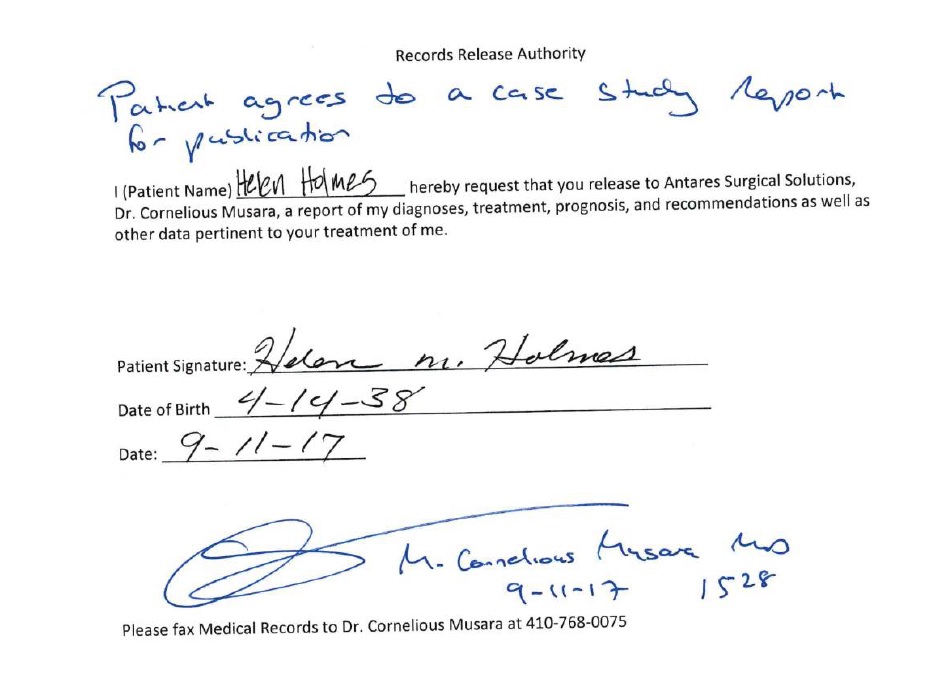 Records Release Authority
Patient agrees to a case study report
for publication
I (Patient Name) Helen Holmes hereby request that you release to Antares Surgical Solutions,
Dr. Cornelious Musara, a report of my diagnoses, treatment, prognosis, and recommendations as well as
other data pertinent to your treatment of me.
Patient Signature: Helen m. Holmes
Date of Birth 4-14-38
Date: 9-11-17
M. Cornelious Musara MD
9-11-17 1528
Please fax Medical Records to Dr. Cornelious Musara at 410-768-0075